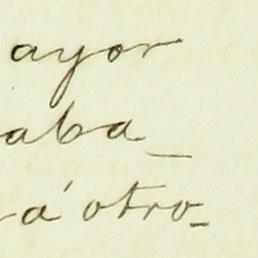 ayor
aba_
a' otro_